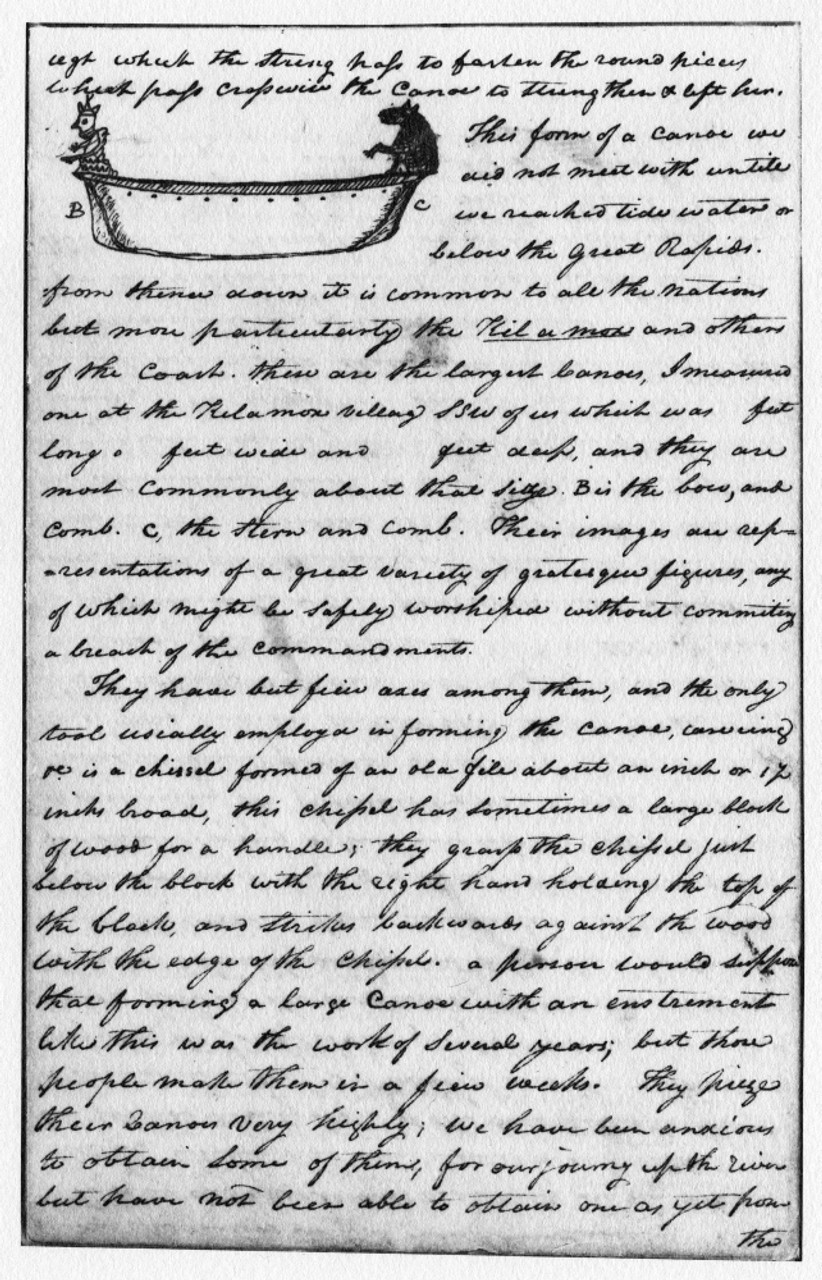 which the string pass to fasten the round pieces
which pass crosswise the Canoe to strengthen & lift her.
This form of a canoe we
did not meet with untile
we reached tide water or
below the Great Rapids.
B
C
from thence down it is common to all the nations
but more particularly the Kil a mox and others
of the Coast. these are the largest Canoes, I measured
one at the Kilamox villag SSW of us which was feet
long feet wide and feet deep, and they are
most Commonly about that size. B is the bow, and
Comb. C, the stern and Comb. Their images are rep=
=resentations of a great variety of grotesque figures, any
of which might be safely worshiped without commiting
a breach of the commandments.
They have but fiew axes among them, and the only
tool usially employd in forming the canoe, carveing
&c is a chissel formed of an old file about an inch or 1½
inchs broad, this chissel has sometimes a large block
of wood for a handle; they grasp the chissel just
below the block with the right hand holding the top of
the block, and strikes backwards against the wood
with the edge of the chissel. a person would suppose
that forming a large Canoe with an enstrement
like this was the work of several years; but those
people make them in a fiew weeks. They prize
their Canoes very highly; we have been anxious
to obtain some of them, for our journy up the river
but have not been able to obtain one as yet from
the